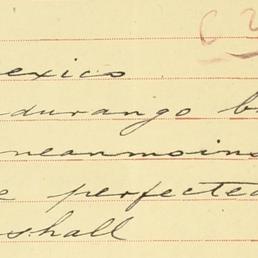 exico
durango b
neanmoins
e perfected
shall